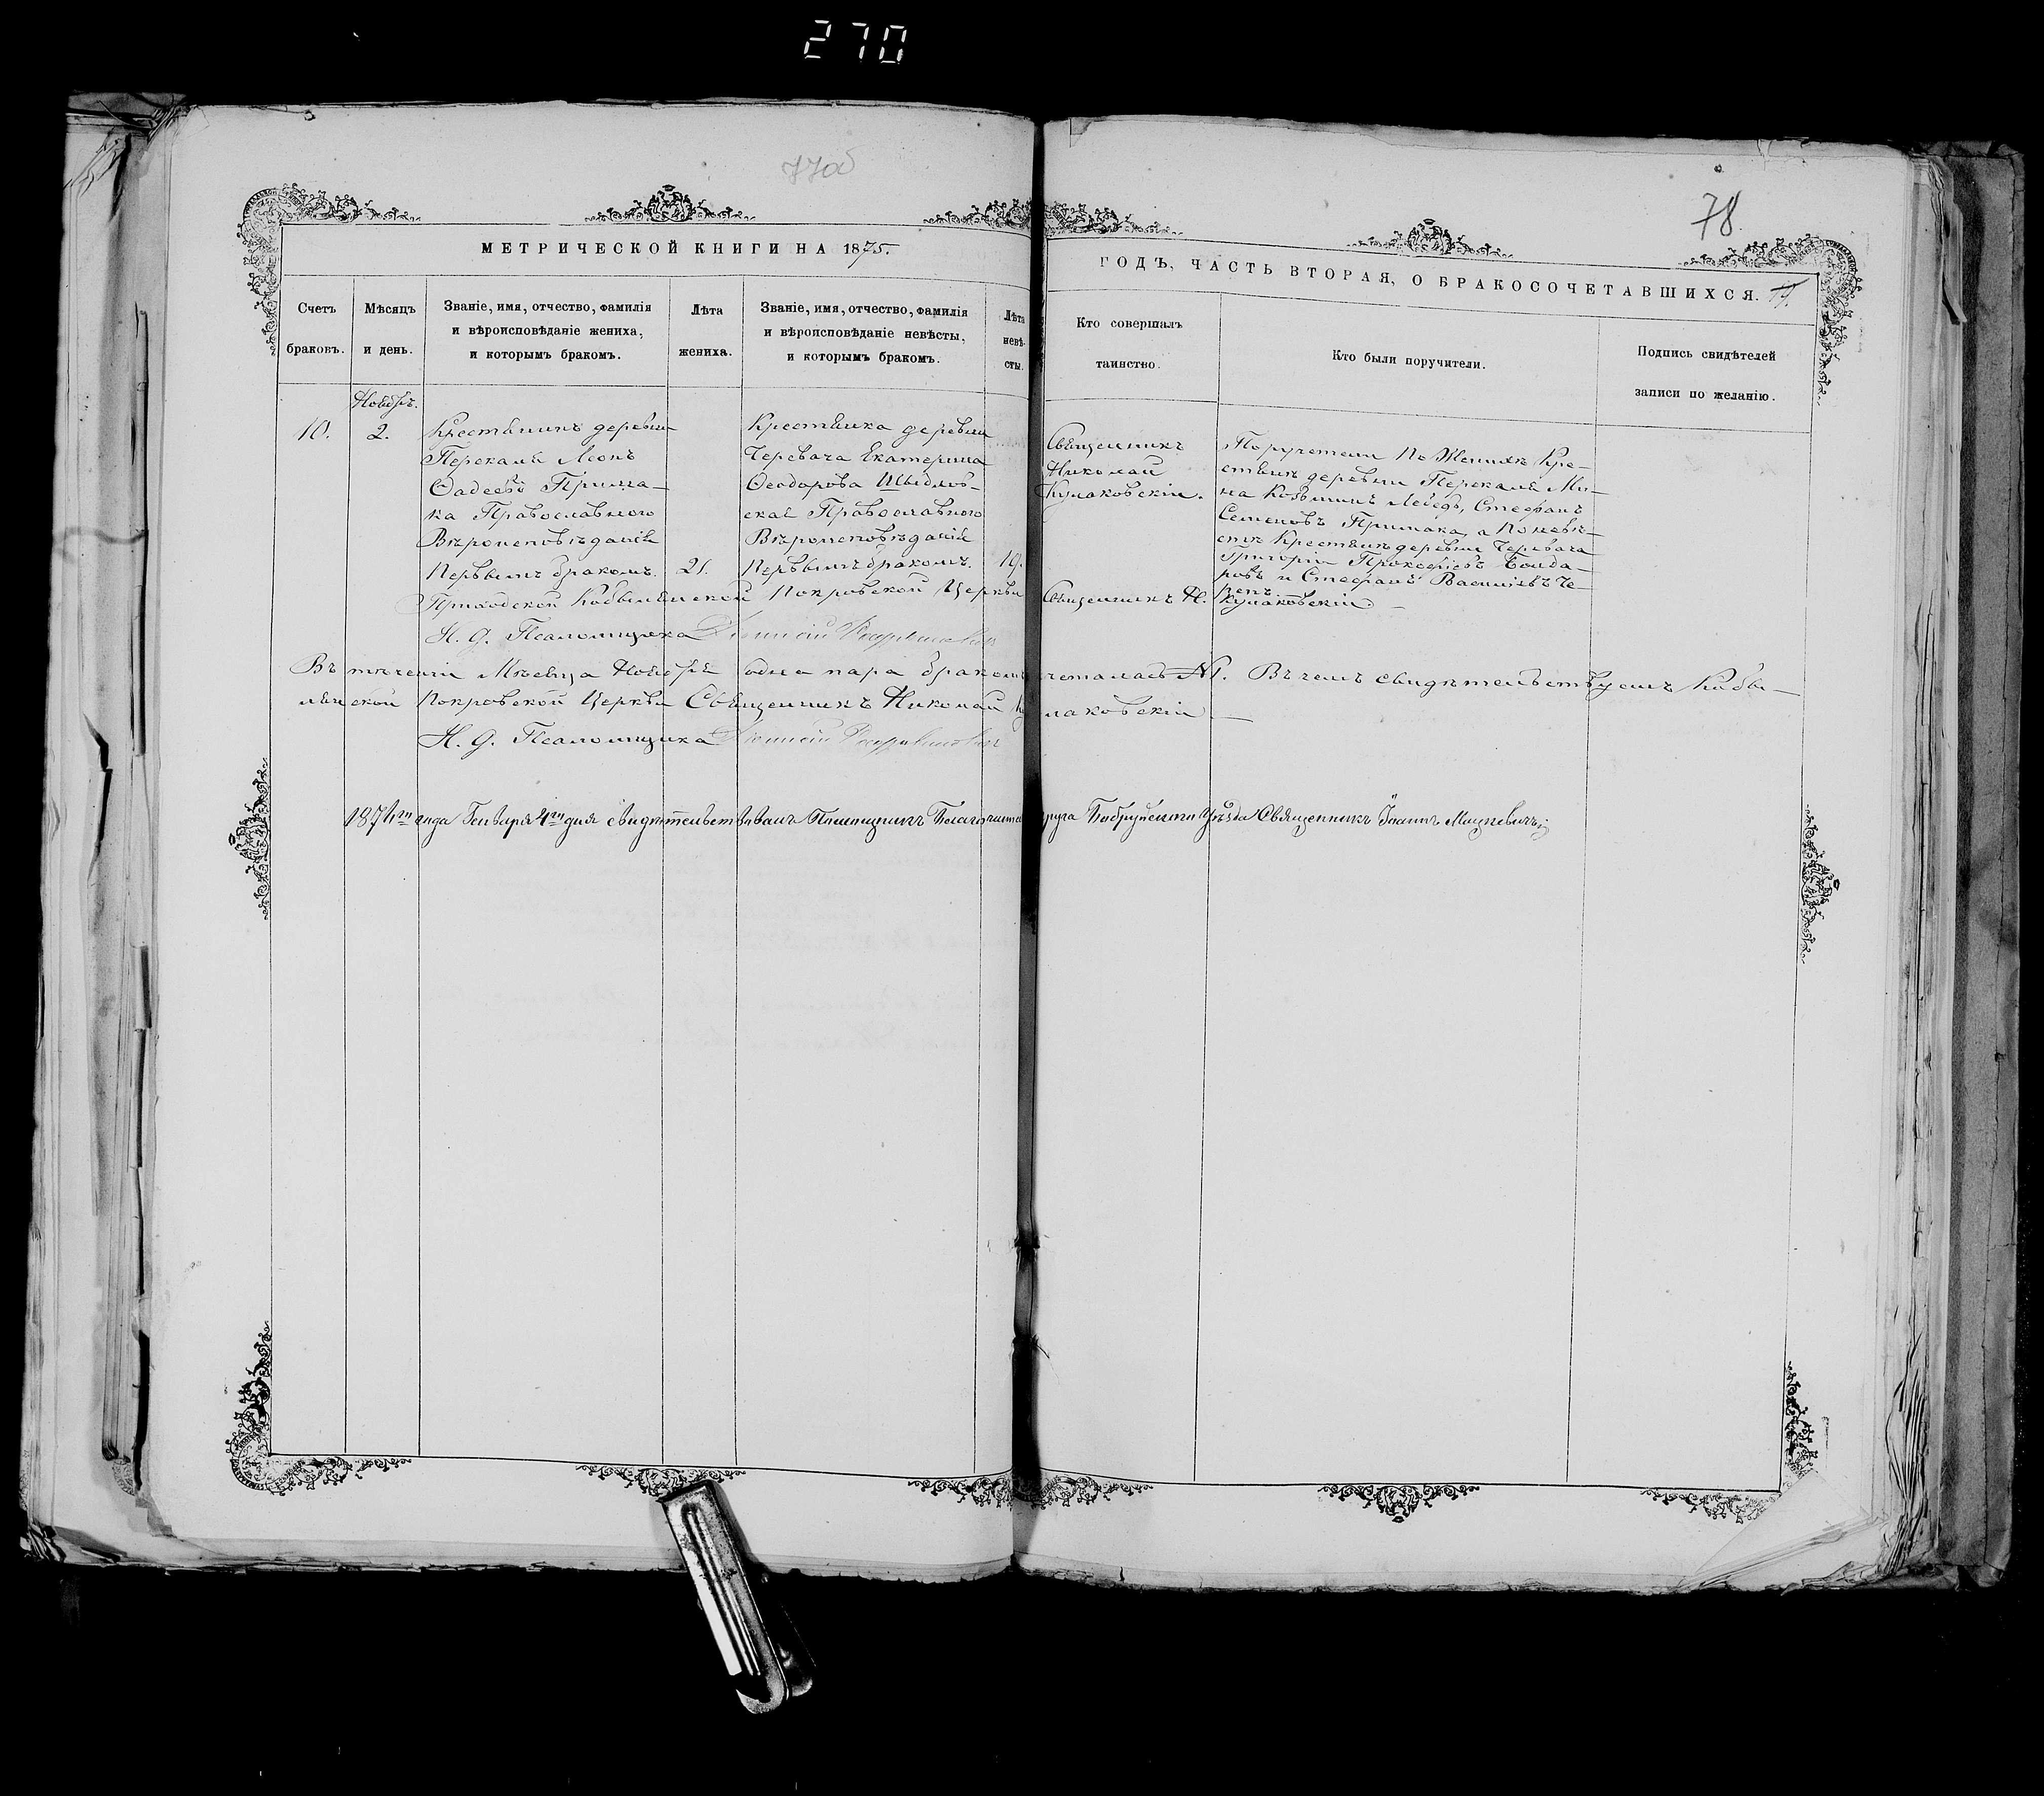 270
77об
78
МЕТРИЧЕСКОЙ КНИГИ НА 1875.
ГОДЪ, ЧАСТЬ ВТОРАЯ, О БРАКОСОЧЕТАВШИХСЯ.
Счетъ браковъ.
Мѣсяцъ и день.
Званіе, имя, отчество, фамилія
и вѣроисповѣданіе жениха,
и которымъ бракомъ.
Лѣта жениха.
Званіе, имя, отчество, фамилія
и вѣроисповѣданіе невѣсты,
и которымъ бракомъ.
Лѣта невѣ-
сты.
Кто совершалъ
таинство.
Кто были поручители.
Подпись свидѣтелей
записи по желанію.
Ноябрь.
10.
2.
Крестьянинъ деревни
Перекаля Леонъ
Фадеевъ Прима-
ка Православнаго
Вѣроисповѣданія
Первымъ бракомъ.
21.
Крестьянка деревни
Черевача Екатерина
Феодорова Шидлов-
ская Православнаго
Вѣроисповѣданія
Первымъ бракомъ.
19.
Священникъ
Николай
Кулаковскій.
Поручители По Женихѣ Кре-
стьянъ деревни Перекаля Ми-
на Козьминъ Лебедь, Стефанъ
Семеновъ Примака, а По невѣ-
стѣ Крестьянъ деревни Черевача
Григорій Прокофіевъ Бонда-
ровъ и Стефанъ Василіевъ Че-
репъ
Приходской Кобылянской Покровской Церкви Священникъ Н. Кулаковскій.
И. д. Псаломщика
Въ теченіи Мѣсяца Ноября одна пара бракомъ сочеталась №1. Въ чемъ свидѣтельствуемъ Кобы-
лянской Покровской Церкви Священникъ Николай Кулаковскій
И. д. Псаломщика
года Генваря 4го дня свидѣтельствовалъ Помощникъ Благочиннаго Бобруйскаго Уѣзда Священникъ Іоаннъ Мицкевичъ